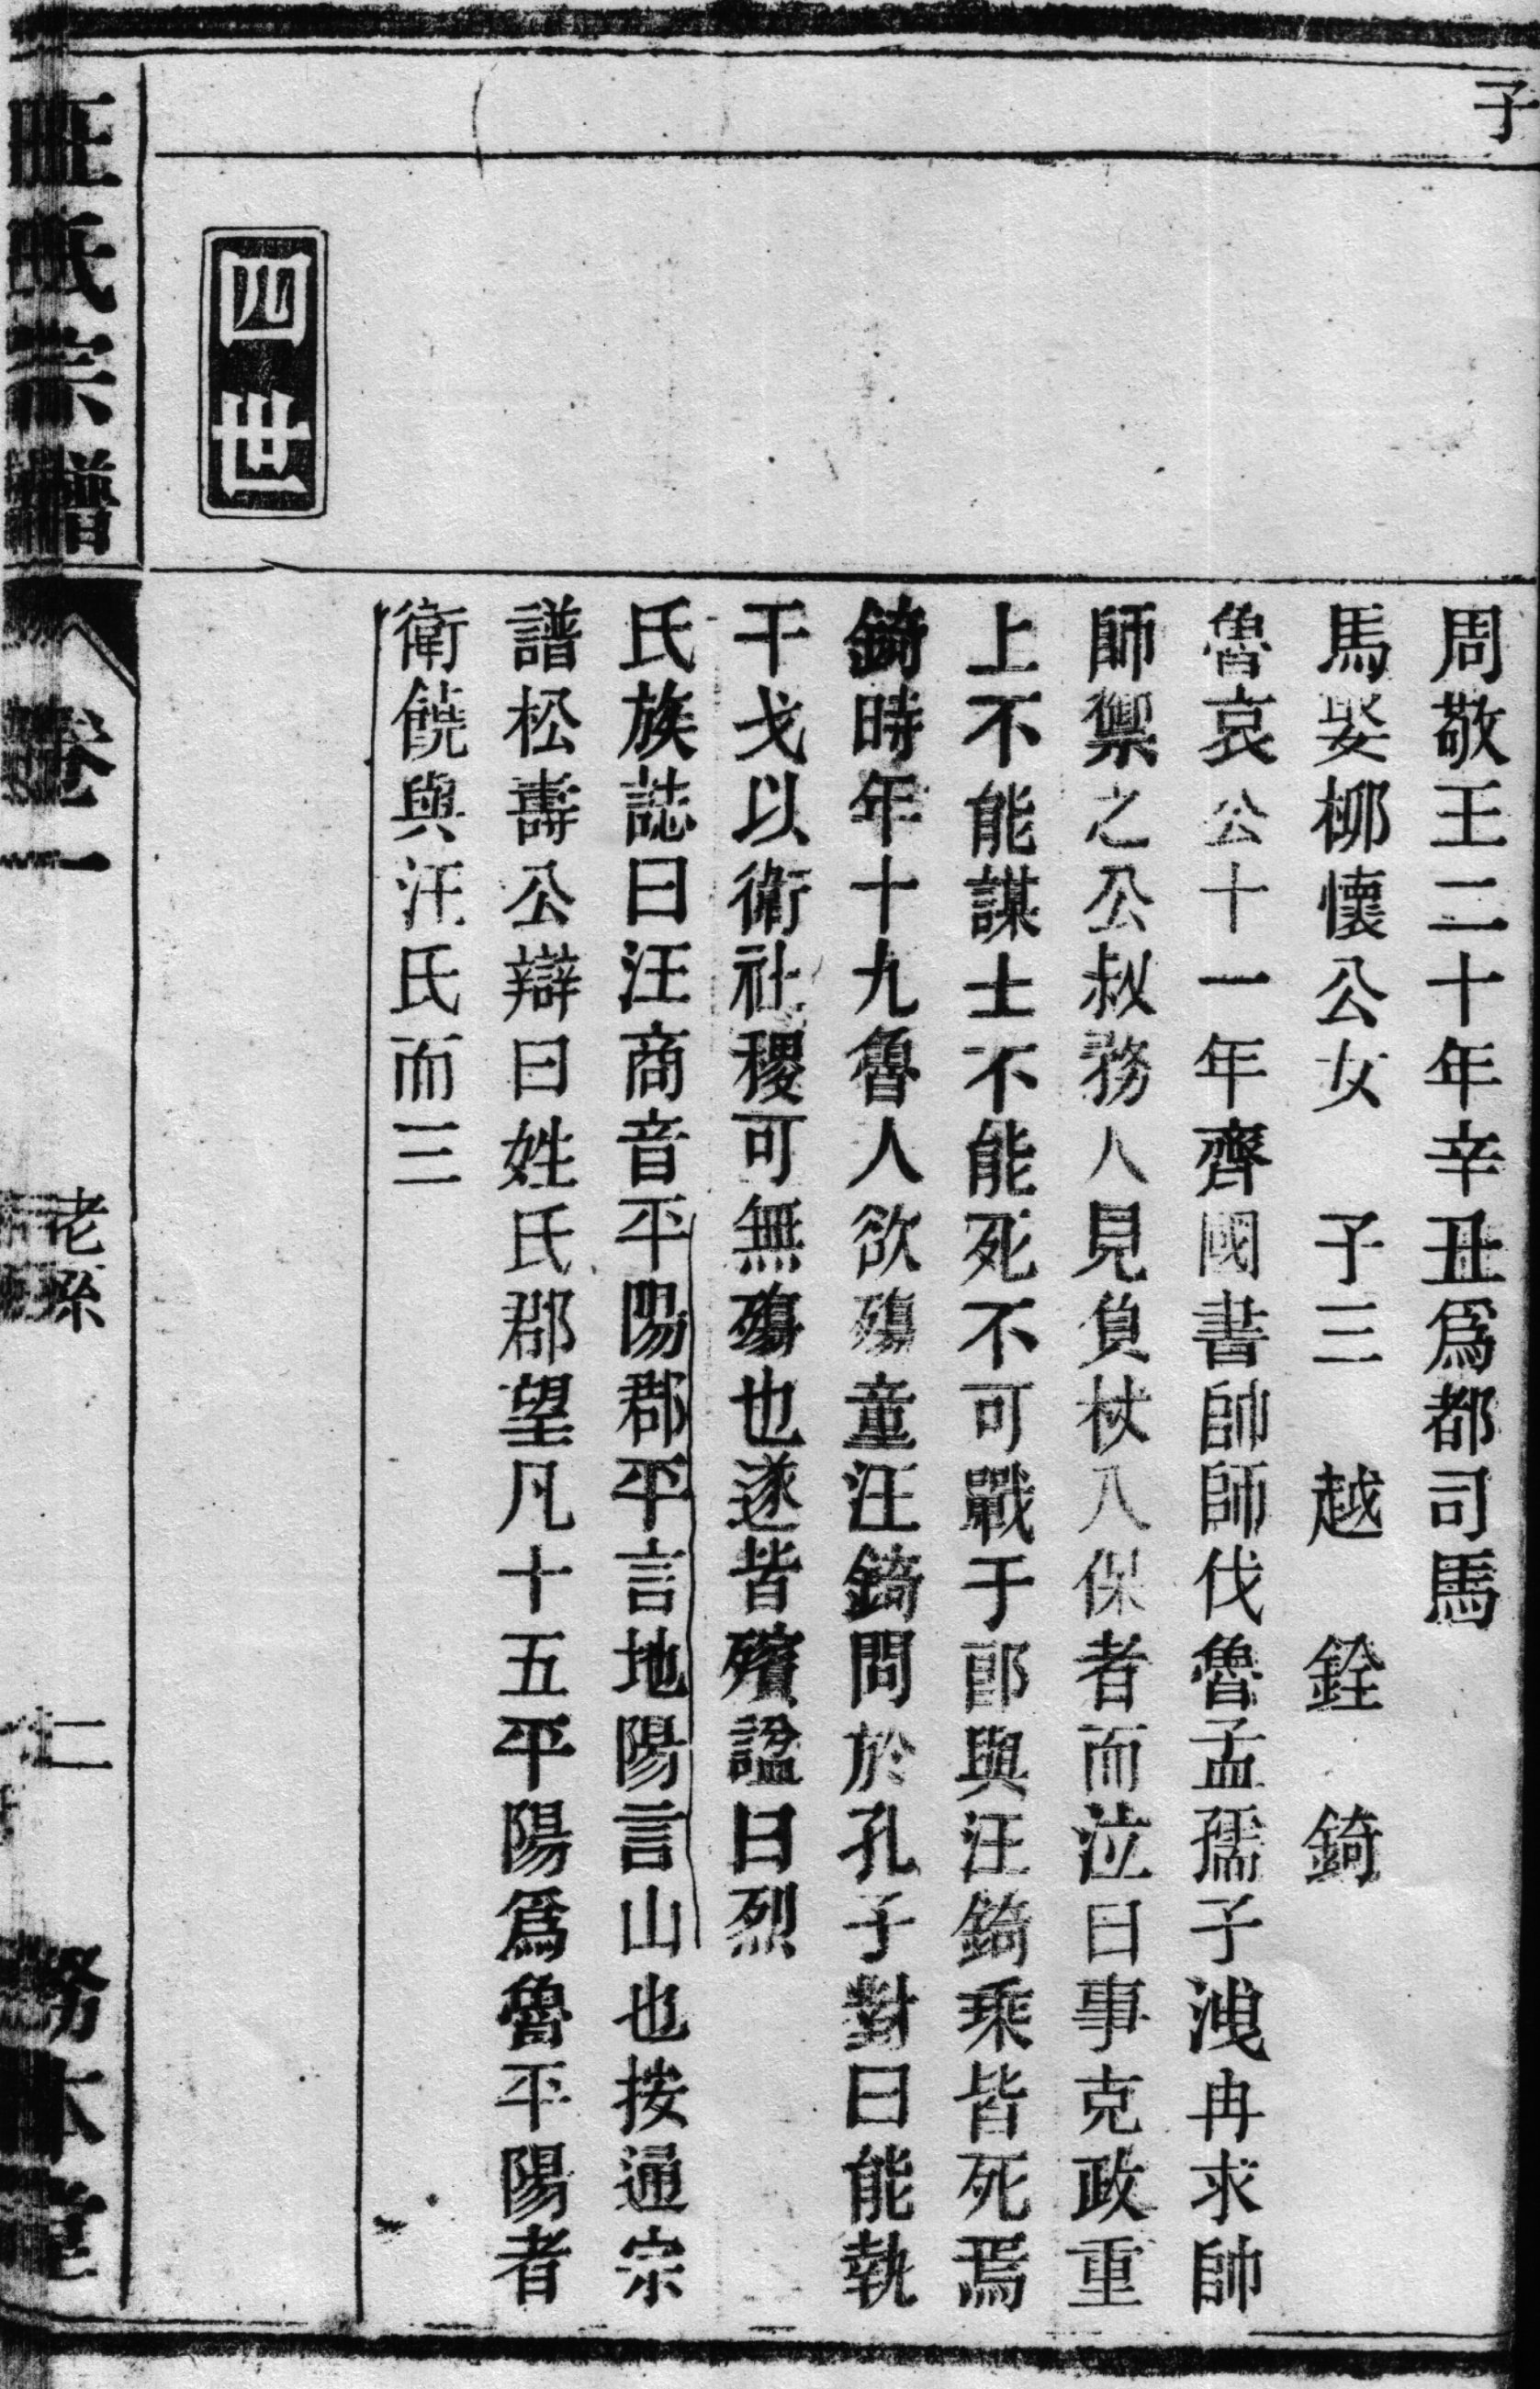 子
周敬王二十年辛丑爲都司馬
馬娶柳懷公女 子三 越 銓 錡
魯哀公十一年齊國書帥師伐魯孟孺子洩冉求帥
師禦之公叔務人見負杖入保者而泣曰事克政重
上不能謀士不能死不可戰于郎與汪錡乘皆死焉
錡時年十九魯人欲殤童汪錡問於孔子對曰能執
干戈以衛社稷可無殤也遂皆殯諡曰烈
氏族誌曰汪商音平陽郡平言地陽言山也按通宗
譜松壽公辯曰姓氏郡望凡十五平陽爲魯平陽者
衛饒與汪氏而三
四世
汪氏宗譜 卷一 老系 二 務本堂